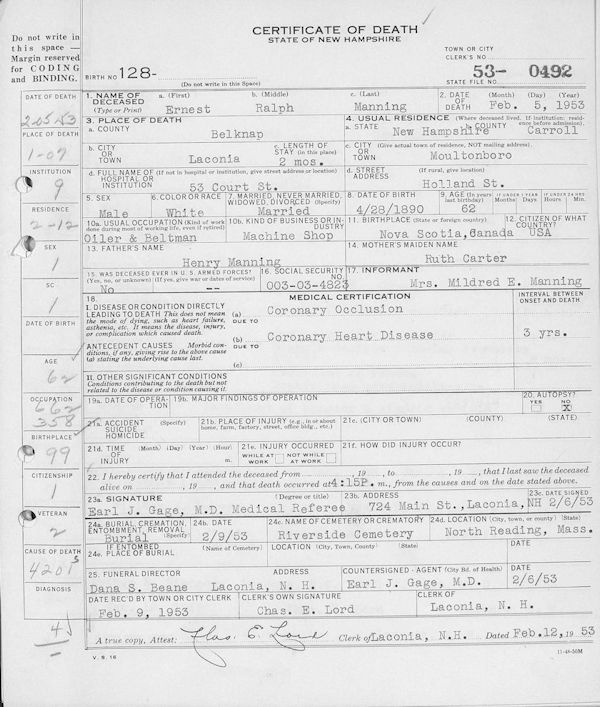 CERTIFICATE OF DEATH
STATE OF NEW HAMPSHIRE
Do not write in
this space —
Margin reserved
for CODING
and BINDING.
BIRTH NO 128-
(Do not write in this Space)
TOWN OR CITY
CLERK'S NO.
STATE FILE NO. 53- 0492
DATE OF DEATH
1. NAME OF DECEASED (Type or Print) a. (First) Ernest b. (Middle) Ralph c. (Last) Manning
2. DATE OF DEATH (Month) (Day) (Year) Feb. 5, 1953
2-05-53
PLACE OF DEATH
1-07
3. PLACE OF DEATH
a. COUNTY Belknap
4. USUAL RESIDENCE (Where deceased lived. If institution: residence before admission).
a. STATE New Hampshire b. COUNTY Carroll
b. CITY OR TOWN Laconia
c. LENGTH OF STAY (in this place) 2 mos.
c. CITY OR TOWN (Give actual town of residence, NOT mailing address). Moultonboro
INSTITUTION
9
d. FULL NAME OF HOSPITAL OR INSTITUTION (If not in hospital or institution, give street address or location) 53 Court St.
d. STREET ADDRESS (If rural, give location) Holland St.
RESIDENCE
2-12
5. SEX Male
6. COLOR OR RACE White
7. MARRIED, NEVER MARRIED, WIDOWED, DIVORCED (Specify) Married
8. DATE OF BIRTH 4/28/1890
9. AGE (In years last birthday) 62
IF UNDER 1 YEAR Months Days
IF UNDER 24 HRS Hours Min.
10a. USUAL OCCUPATION (Kind of work done during most of working life, even if retired) Oiler & Beltman
10b. KIND OF BUSINESS OR INDUSTRY Machine Shop
11. BIRTHPLACE (State or foreign country) Nova Scotia, Canada
12. CITIZEN OF WHAT COUNTRY? USA
SEX
1
13. FATHER'S NAME Henry Manning
14. MOTHER'S MAIDEN NAME Ruth Carter
SC
1
15. WAS DECEASED EVER IN U. S. ARMED FORCES? (Yes, no, or unknown) (If yes, give war or dates of service) No --
16. SOCIAL SECURITY NO. 003-03-4823
17. INFORMANT Mrs. Mildred E. Manning
18. MEDICAL CERTIFICATION
INTERVAL BETWEEN ONSET AND DEATH
I. DISEASE OR CONDITION DIRECTLY LEADING TO DEATH This does not mean the mode of dying, such as heart failure, asthenia, etc. It means the disease, injury, or complication which caused death.
(a) Coronary Occlusion
DUE TO
DATE OF BIRTH
ANTECEDENT CAUSES Morbid conditions, if any, giving rise to the above cause (a) stating the underlying cause last.
(b) Coronary Heart Disease 3 yrs.
DUE TO
(c)
AGE
62
II. OTHER SIGNIFICANT CONDITIONS
Conditions contributing to the death but not related to the disease or condition causing it.
OCCUPATION
662
358
19a. DATE OF OPERATION
19b. MAJOR FINDINGS OF OPERATION
20. AUTOPSY? YES NO X
21a. ACCIDENT SUICIDE HOMICIDE (Specify)
21b. PLACE OF INJURY (e.g., in or about home, farm, factory, street, office bldg., etc.)
21c. (CITY OR TOWN) (COUNTY) (STATE)
BIRTHPLACE
99
21d. TIME OF INJURY (Month) (Day) (Year) (Hour) m.
21e. INJURY OCCURRED WHILE AT WORK NOT WHILE AT WORK
21f. HOW DID INJURY OCCUR?
CITIZENSHIP
1
22. I hereby certify that I attended the deceased from , 19 , to , 19 , that I last saw the deceased
alive on , 19 , and that death occurred at 4:15P. m., from the causes and on the date stated above.
23a. SIGNATURE (Degree or title) Earl J. Gage, M.D. Medical Referee
23b. ADDRESS 724 Main St., Laconia, NH
23c. DATE SIGNED 2/6/53
VETERAN
2
24a. BURIAL, CREMATION, ENTOMBMENT, REMOVAL (Specify) Burial
24b. DATE 2/9/53
24c. NAME OF CEMETERY OR CREMATORY Riverside Cemetery
24d. LOCATION (City, town, or county) (State) North Reading, Mass.
IF ENTOMBED
24e. PLACE OF BURIAL (Name of Cemetery) LOCATION (City, Town, County) (State) DATE
CAUSE OF DEATH
4201
25. FUNERAL DIRECTOR ADDRESS Dana S. Beane Laconia, N. H.
COUNTERSIGNED - AGENT (City Bd. of Health) Earl J. Gage, M.D.
DATE 2/6/53
DIAGNOSIS
DATE REC'D BY TOWN OR CITY CLERK Feb. 9, 1953
CLERK'S OWN SIGNATURE Chas. E. Lord
CLERK OF Laconia, N. H.
A true copy, Attest: Chas. E. Lord Clerk of Laconia, N.H. Dated Feb.12, 19 53
V. S. 16
11-48-50M